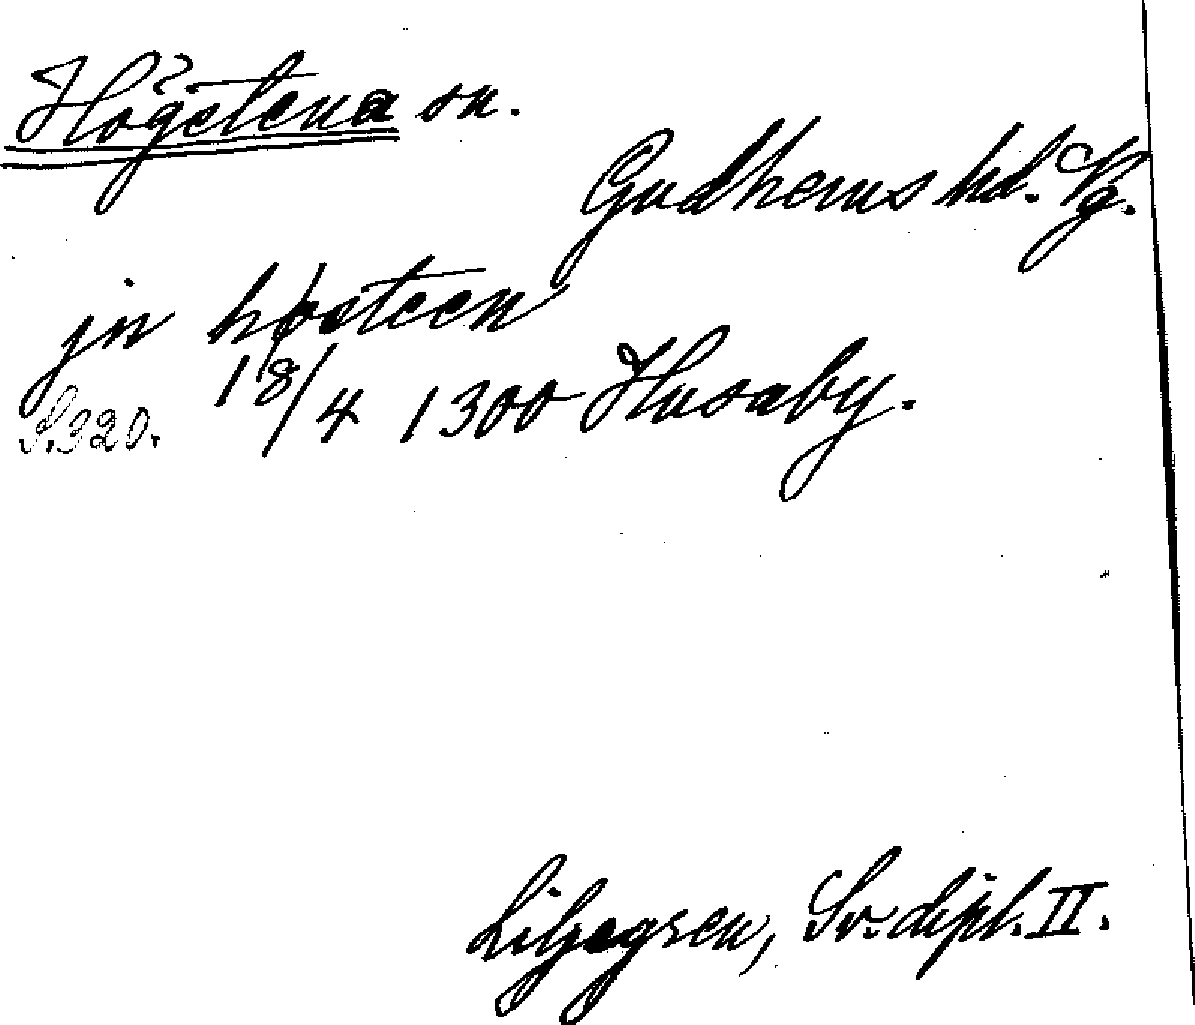 Högstena sn.
Gudhems hd. Vg.
jn høsteen
18/4 1300 Husaby.
S. 320.
Liljegren, Sv. dipl. II.